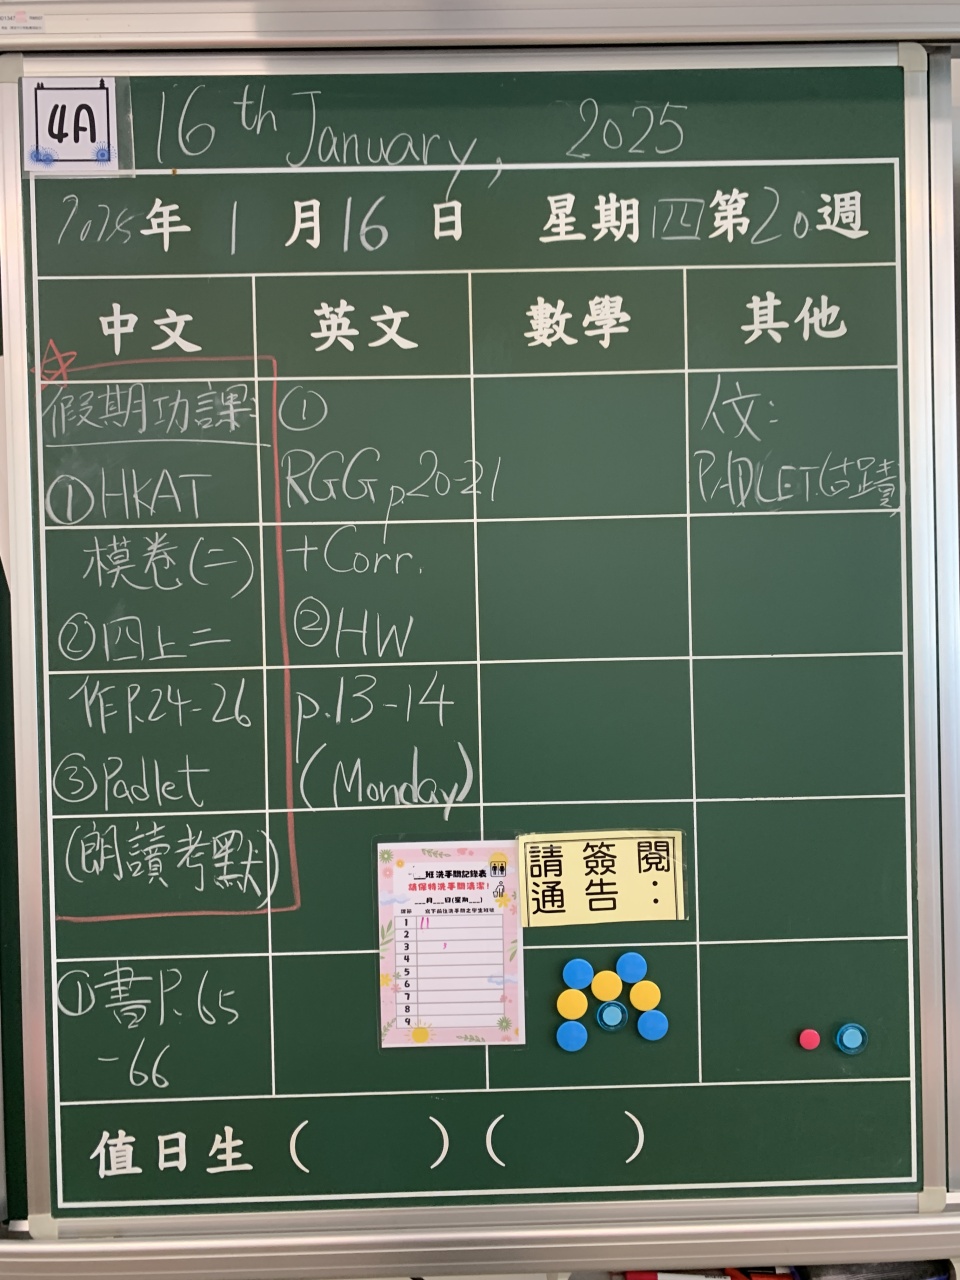 4A
16th January, 2025
2025年 1 月 16 日 星期四第20週
中文 英文 數學 其他
假期功課:
①HKAT
模卷(二)
②四上二
作P.24-26
③Padlet
(朗讀考默)
①書P.65
-66
①
RGG p.20-21
+Corr.
②HW
p.13-14
(Monday)
人文:
PADLET(古蹟)
班洗手間記錄表
請保持洗手間清潔!
___月___日(星期___)
1
2
3
4
5
6
7
8
9
請簽閱
通告:
值日生( )( )